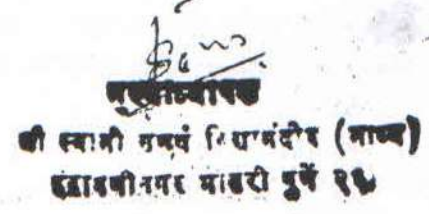 मुख्याध्यापक
श्री स्वामी समर्थ विद्यामंदीर (माध्य)
इंद्रायणीनगर भोसरी पुणें २६